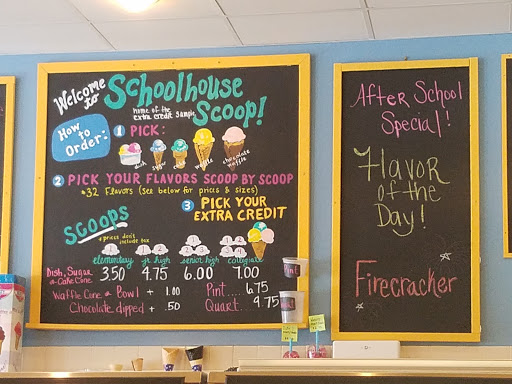 Welcome to
Schoolhouse
Scoop!
home of the
extra credit sample
How to
Order:
1 PICK:
dish
sugar
cake
waffle
chocolate
waffle
2 PICK YOUR FLAVORS SCOOP BY SCOOP
*32 Flavors (see below for prices & sizes)
3 PICK YOUR
EXTRA CREDIT
SCOOPS
*prices don't
include tax
elementary jr high senior high collegiate
Dish, Sugar
or Cake Cone 3.50 4.75 6.00 7.00
Waffle Cone or Bowl + 1.00
Chocolate dipped + .50
Pint.... 6.75
Quart... 9.75
After School
Special!
Flavor
of the
Day!
Firecracker
Pint